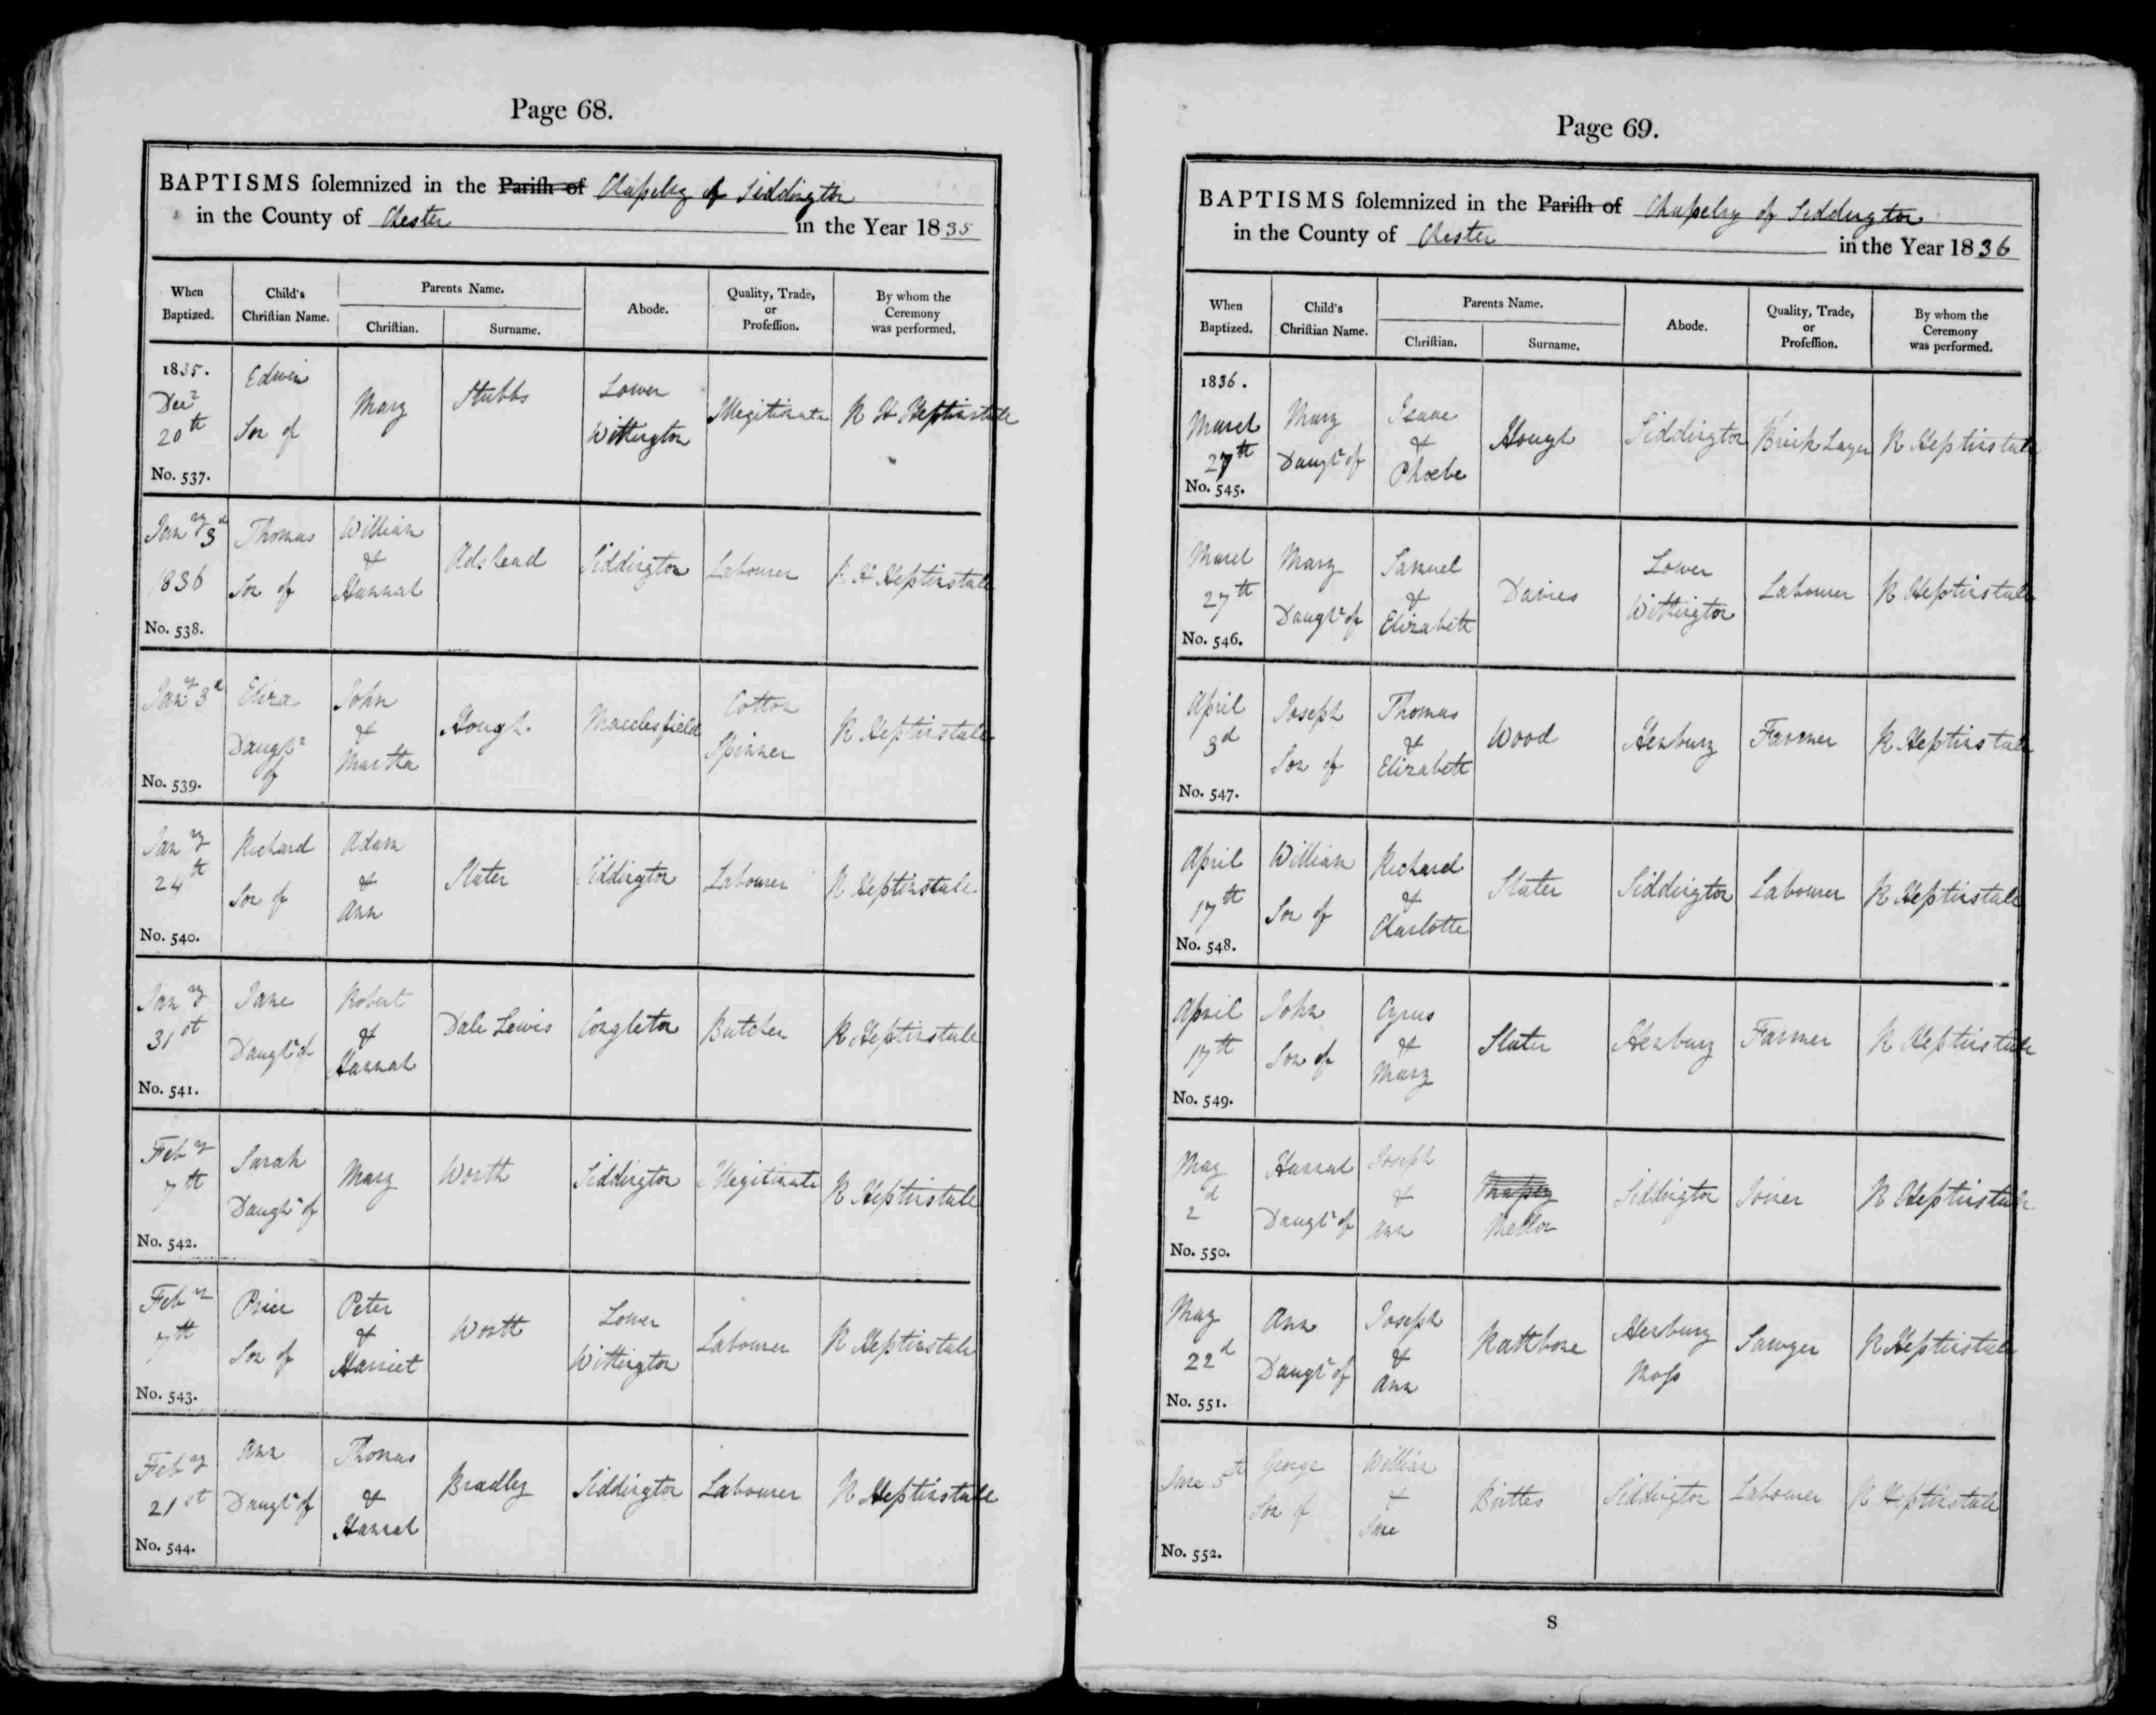 Page 68.
BAPTISMS solemnized in the Parish of Chapelry of Siddington
in the County of Chester in the Year 1835
When Baptized.
Child's Christian Name.
Parents Name.
Christian.
Surname.
Abode.
Quality, Trade, or Profession.
By whom the Ceremony was performed.
1835. Decr 20th No. 537.
Edwin Son of
Mary
Stubbs
Lower Withington
Illegitimate
R H Heptinstall
Jany 3d 1836 No. 538.
Thomas Son of
William & Hannah
Adshead
Siddington
Labourer
R H Heptinstall
Jany 3d No. 539.
Eliza Daughr of
John & Martha
Hough.
Macclesfield
Cotton Spinner
R Heptinstall
Jany 24th No. 540.
Richard Son of
Adam & Ann
Slater
Siddington
Labourer
R Heptinstall
Jany 31st No. 541.
Jane Daughr of
Robert & Hannah
Dale Lewis
Congleton
Butcher
R Heptinstall
Feby 7th No. 542.
Sarah Daughr of
Mary
Worth
Siddington
Illegitimate
R Heptinstall
Feby 7th No. 543.
Peter & Harriet
Son of
Worth
Lower Withington
Labourer
R Heptinstall
Feby 21st No. 544.
Ann Daughr of
Thomas & Hannah
Bradley
Siddington
Labourer
R Heptinstall
Page 69.
BAPTISMS solemnized in the Parish of Chapelry of Siddington
in the County of Chester in the Year 1836
When Baptized.
Child's Christian Name.
Parents Name.
Christian.
Surname.
Abode.
Quality, Trade, or Profession.
By whom the Ceremony was performed.
1836. March 27th No. 545.
Mary Daughr of
Isaac & Phoebe
Hough
Siddington
Brick Layer
R Heptinstall
March 27th No. 546.
Mary Daughr of
Samuel & Elizabeth
Davies
Lower Withington
Labourer
R Heptinstall
April 3d No. 547.
Joseph Son of
Thomas & Elizabeth
Wood
Henbury
Farmer
R Heptinstall
April 17th No. 548.
William Son of
Richard & Charlotte
Slater
Siddington
Labourer
R Heptinstall
April 17th No. 549.
John Son of
Cyrus & Mary
Slater
Henbury
Farmer
R Heptinstall
May 2d No. 550.
Hannah Daughr of
Joseph & Ann
Mellor
Siddington
Joiner
R Heptinstall
May 22d No. 551.
Ann Daughr of
Joseph & Ann
Rathbone
Henbury Moss
Sawyer
R Heptinstall
June 5th No. 552.
George Son of
William & Jane
Siddington
Labourer
R Heptinstall
S